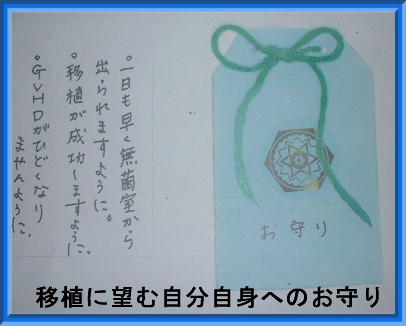 。一日も早く無菌室から
出られますように。
。移植が成功しますように。
。GVHDがひどくなり
ませんように。
お守り
移植に望む自分自身へのお守り